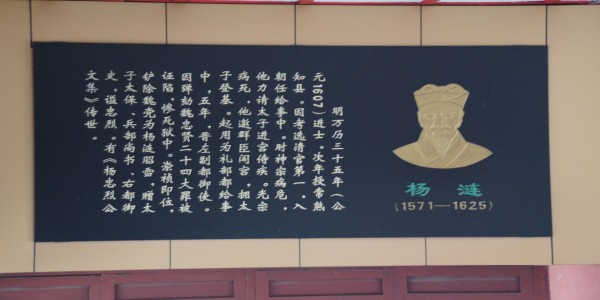 明万历三十五年（公
元1607）进士。次年授常熟
知县。因考选清官第一，入
朝任给事中。时神宗病危，
他力请太子进宫侍疾。光宗
病死，他邀群臣闯宫，拥太
子登基。起用为礼部都给事
中，五年，晋左副都御使。
因弹劾魏忠贤二十四大罪被
诬陷，惨死狱中。崇祯即位，
铲除魏党为杨涟昭雪，赠太
子太保、兵部尚书、右都御
史，谥忠烈。有《杨忠烈公
文集》传世。
杨涟
(1571—1625)